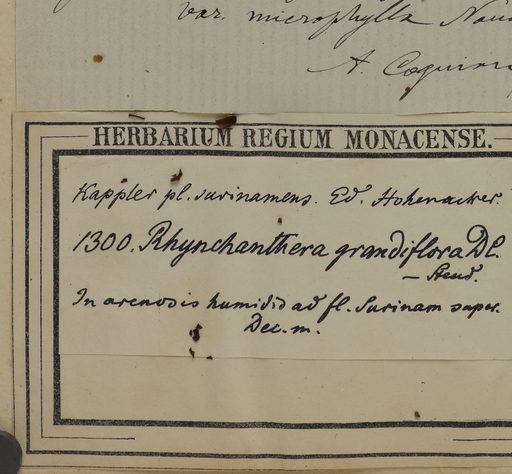 var. microphylla Naud
A. Cogniaux
HERBARIUM REGIUM MONACENSE.
Kappler pl. surinamens. Ed. Hohenacker.
1300. Rhynchanthera grandiflora DC.
— Steud.
In arenosis humidis ad fl. Surinam super.
Dec. m.